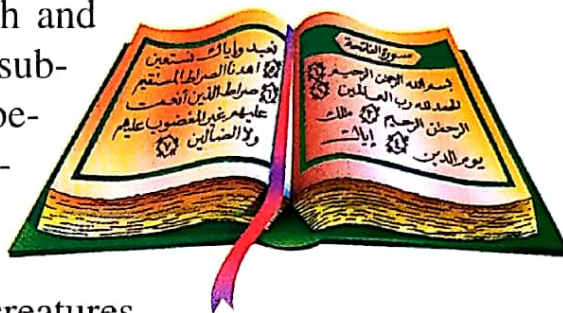 h and
sub-
be-
-
creatures
سورة الفاتحة
بسم الله الرحمن الرحيم ١
الحمد لله رب العالمين ٢
الرحمن الرحيم ٣ ملك
يوم الدين ٤ إياك
نعبد وإياك نستعين
٥ اهدنا الصراط المستقيم
٦ صراط الذين أنعمت
عليهم غير المغضوب عليهم
ولا الضالين ٧